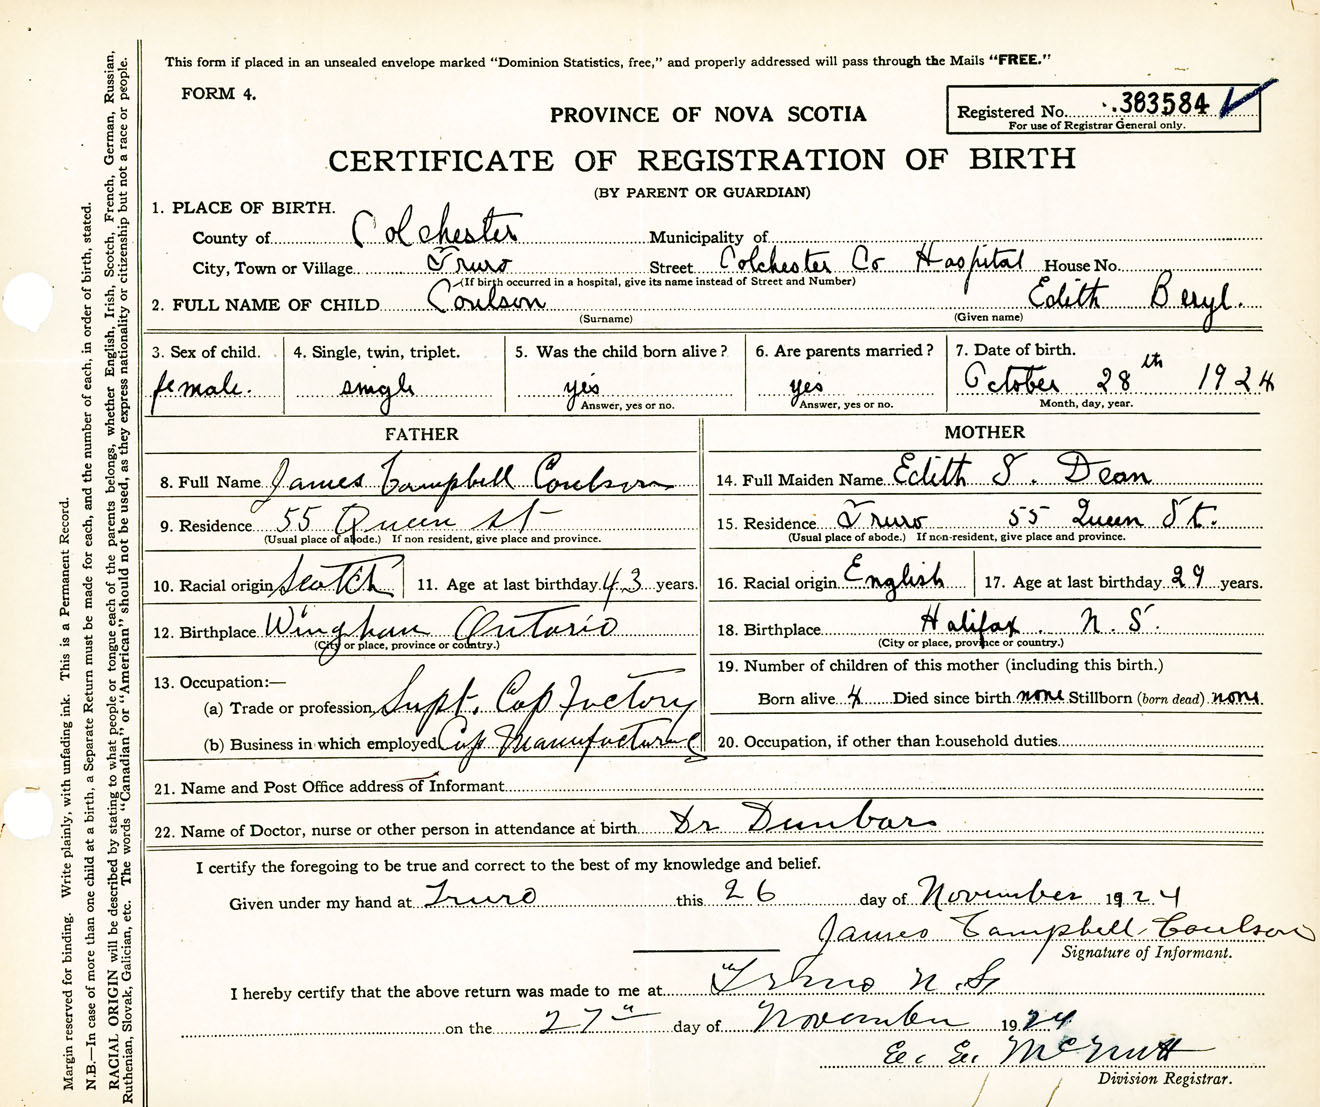 This form if placed in an unsealed envelope marked “Dominion Statistics, free,” and properly addressed will pass through the Mails “FREE.”
FORM 4.
PROVINCE OF NOVA SCOTIA
Registered No. 383584
For use of Registrar General only.
CERTIFICATE OF REGISTRATION OF BIRTH
(BY PARENT OR GUARDIAN)
1. PLACE OF BIRTH.
County of Colchester Municipality of
City, Town or Village Truro Street Colchester Co Hospital House No.
(If birth occurred in a hospital, give its name instead of Street and Number)
2. FULL NAME OF CHILD Coulson Edith Beryl.
(Surname) (Given name)
3. Sex of child. 4. Single, twin, triplet. 5. Was the child born alive? 6. Are parents married? 7. Date of birth.
female. single yes yes October 28th 1924
Answer, yes or no. Answer, yes or no. Month, day, year.
FATHER MOTHER
8. Full Name James Campbell Coulson 14. Full Maiden Name Edith S. Dean
9. Residence 55 Queen St 15. Residence Truro 55 Queen St.
(Usual place of abode.) If non resident, give place and province. (Usual place of abode.) If non-resident, give place and province.
10. Racial origin Scotch 11. Age at last birthday 43 years. 16. Racial origin English 17. Age at last birthday 29 years.
12. Birthplace Wingham Ontario 18. Birthplace Halifax. N. S.
(City or place, province or country.) (City or place, province or country.)
13. Occupation:— 19. Number of children of this mother (including this birth.)
(a) Trade or profession Supt. Cap Factory Born alive 4 Died since birth none Stillborn (born dead) none
(b) Business in which employed Cap Manufacturing 20. Occupation, if other than household duties
21. Name and Post Office address of Informant
22. Name of Doctor, nurse or other person in attendance at birth Dr Dunbar
I certify the foregoing to be true and correct to the best of my knowledge and belief.
Given under my hand at Truro this 26 day of November 1924
James Campbell Coulson
Signature of Informant.
I hereby certify that the above return was made to me at Truro N. S
on the 27th day of November 1924
McNutt
Division Registrar.
Margin reserved for binding. Write plainly, with unfading ink. This is a Permanent Record.
N.B.—In case of more than one child at a birth, a Separate Return must be made for each, and the number of each, in order of birth, stated.
RACIAL ORIGIN will be described by stating to what people or tongue each of the parents belongs, whether English, Irish, Scotch, French, German, Russian,
Ruthenian, Slovak, Galician, etc. The words “Canadian” or “American” should not be used, as they express nationality or citizenship but not a race or people.